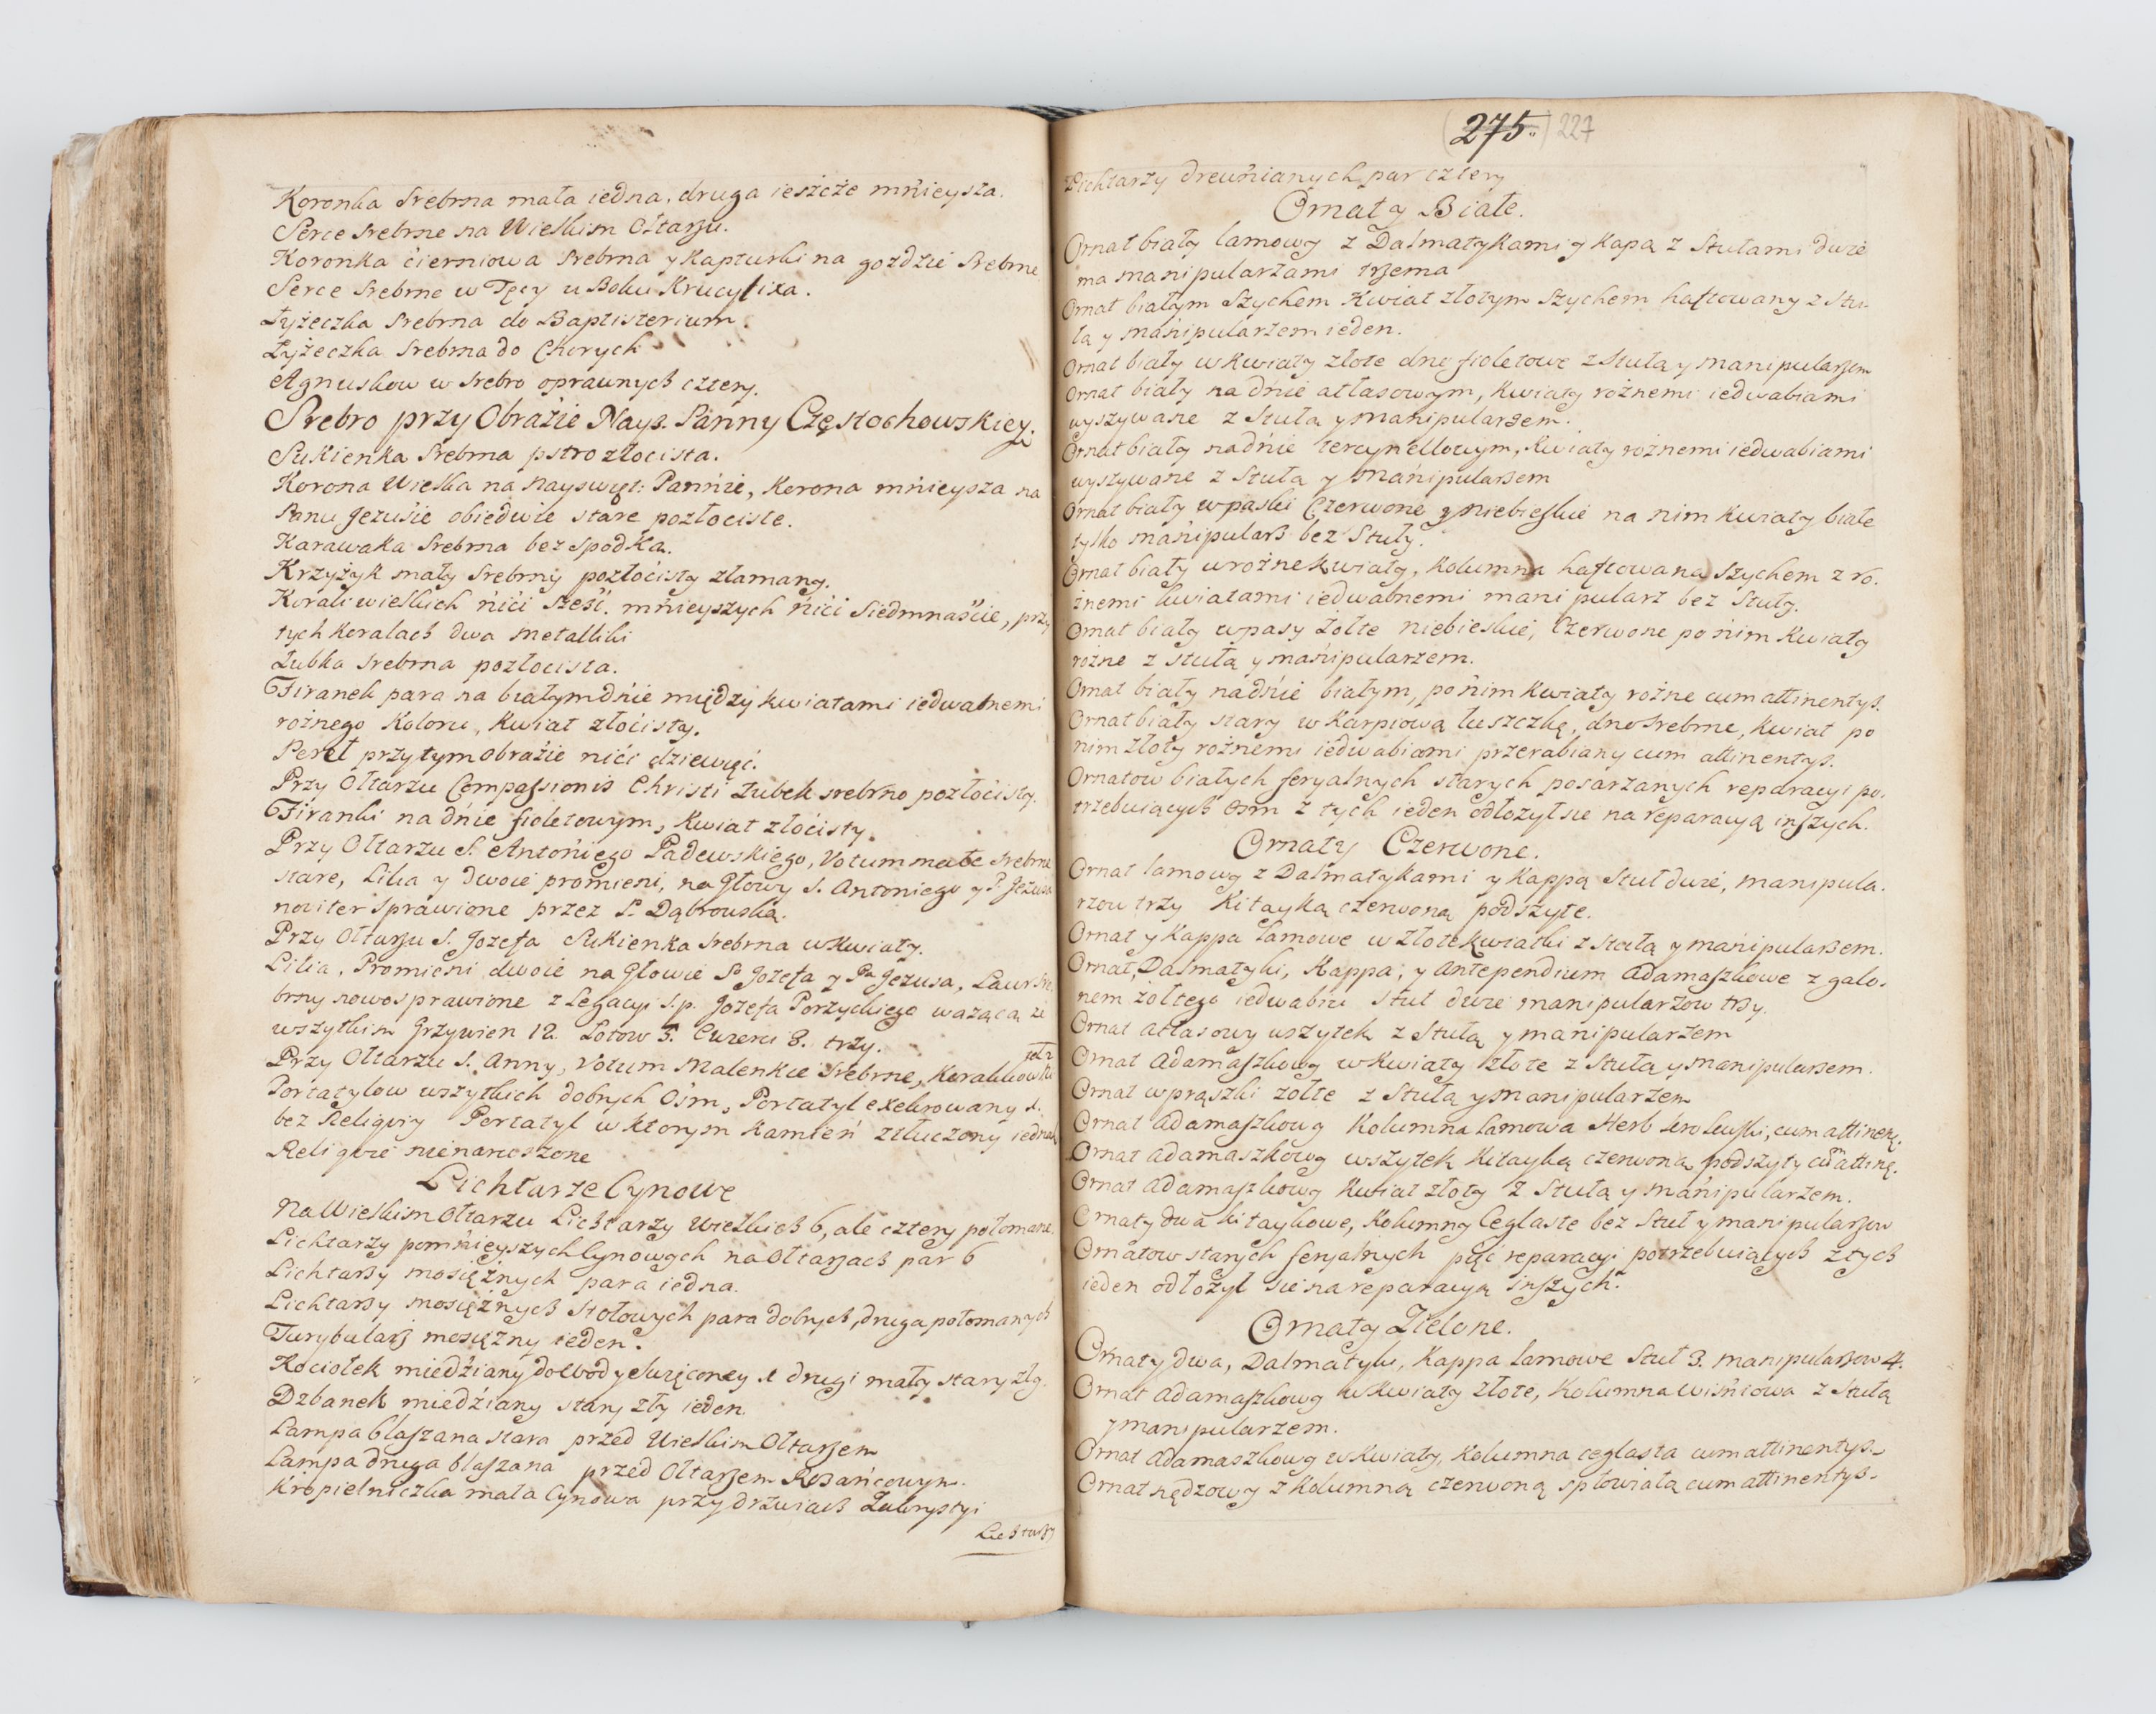 Koronka srebrna mała iedna, druga ieszcze mnieysza.
Serce srebrne na Wielkim Ołtarzu.
Koronka cierniowa srebrna y kapturki na gozdzie srebrne
Serce srebrne w Tęcy u Boku Krucyfixa.
Łyżeczka srebrna do Baptisterium.
Łyżeczka srebrna do Chorych
Agnuskow w srebro oprawnych cztery.
Srebro przy Obrazie Nays. Panny Częstochowskiey.
Sukienka srebrna pstro złocista.
Korona Wielka na Nayswięt: Pannie, Korona mnieysza na
Panu Jezusie obiedwie stare pozłociste.
Karawaka srebrna bez spodka.
Krzyżyk mały srebrny pozłocisty złamany.
Korali wielkich nici sześć. mnieyszych nici siedmnaście, przy
tych koralach dwa metalliki
Łubka srebrna pozłocista.
Firanek para na białym dnie między kwiatami iedwabnemi
rożnego koloru, kwiat złocisty.
Pereł przy tym obrazie nici dziewięć.
Przy Ołtarzu Compassionis Christi Łubek srebrno pozłocisty.
Firanki na dnie fioletowym, kwiat złocisty.
Przy Ołtarzu S. Antoniego Padewskiego, Votum małe srebrne
stare, Lilia y dwoie promieni, na Głowy S. Antoniego y P. Jezusa
noviter sprawione przez P. Dąbrowską.
Przy Ołtarzu S. Jozefa Sukienka srebrna w kwiaty.
Lilia, Promieni dwoie na Głowie S. Jozefa y Pa Jezusa, Laur sre
brny nowo sprawione z Legacyi s.p. Jozefa Porzyckiego ważąca ze
wszytkim Grzywien 12. Łotow 5. trzy.
Przy Ołtarzu S. Anny, Votum Malenkie srebrne,
Portatylow wszytkich dobrych Ośm, Portatyl exekrowany 1.
bez Religviy Portatyl w ktorym kamień ztłuczony iednak
Religvie nienaruszone
Lichtarze Cynowe
Na Wielkim Ołtarzu Lichtarzy Wielkich 6, ale cztery połomane.
Lichtarzy pomnieyszych Cynowych na Ołtarzach par 6
Lichtarzy mosiężnych para iedna.
Lichtarzy mosiężnych stołowych para dobrych, druga połomanych
Turybularz mosiężny ieden.
Kociołek miedziany do wody swięconey 1 drugi mały stary zły.
Dzbanek miedziany stary zły ieden.
Lampa blaszana stara przed Wielkim Ołtarzem
Lampa druga blaszana przed Ołtarzem Rożańcowym.
Kropielniczka mała Cynowa przy drzwiach Zakrystyi
Lichtarzy
275. 227
Lichtarzy drewnianych par cztery
Ornaty Białe.
Ornat biały lamowy z Dalmatykami y kapą z Stułami dwie
ma manipularzami trzema
Ornat białym szychem kwiat złotym szychem haftowany z Stu
łą y manipularzem ieden.
Ornat biały w kwiaty złote dno fioletowe z Stułą y manipularzem
Ornat biały na dnie atłasowym, kwiaty rożnemi iedwabiami
wyszywane z Stułą y manipularzem.
Ornat biały na dnie tercynellowym, kwiaty rożnemi iedwabiami
wyszywane z Stułą y manipularzem
Ornat biały w paski Czerwone y niebieskie na nim kwiaty białe
tylko manipularz bez Stuły.
Ornat biały w rożne kwiaty, kolumna haftowana szychem z ro-
żnemi kwiatami iedwabnemi manipularz bez Stuły.
Ornat biały w pasy żołte niebieskie, Czerwone po nim kwiaty
rożne z Stułą y manipularzem.
Ornat biały na dnie białym, po nim kwiaty rożne cum attinentys.
Ornat biały stary w karpiową łuszczkę, dno srebrne, kwiat po
nim złoty rożnemi iedwabiami przerabiany cum attinentys.
Ornatow białych feryalnych starych posarzanych reparacyi po-
trzebuiących osm z tych ieden odłożył sie na reparacyą inszych.
Ornaty Czerwone.
Ornat lamowy z Dalmatykami y Kappą Stuł dwie, manipula-
rzow trzy Kitayką czerwoną podszyte.
Ornat y Kappa lamowe w złote kwiatki z Stułą y manipularzem.
Ornat, Dalmatyki, Kappa, y Antependium Adamaszkowe z galo-
nem żołtego iedwabiu Stuł dwie manipularzow trzy.
Ornat atłasowy wszytek z Stułą y manipularzem
Ornat Adamaszkowy w kwiaty złote z Stułą y manipularzem.
Ornat w prąszki zołte z Stułą y manipularzem
Ornat Adamaszkowy Kolumna lamowa Herb krolewski, cum attinen.
Ornat adamaszkowy wszytek kitayką czerwoną podszyty cum attinę.
Ornat adamaszkowy kwiat złoty z Stułą y manipularzem.
Ornaty dwa kitaykowe, Kolumny Ceglaste bez Stuł y manipularzow
Ornatow starych feryalnych pięć reparacyi potrzebuiących z tych
ieden odłożył sie na reparacyą inszych.
Ornaty Zielone.
Ornaty dwa, Dalmatyki, Kappa lamowe Stuł 3. manipularzow 4.
Ornat adamaszkowy w kwiaty złote, Kolumna wiśniowa z Stułą
y manipularzem.
Ornat adamaszkowy w kwiaty, Kolumna ceglasta cum attinentys.
Ornat rędzowy z Kolumną czerwoną spłowiałą cum attinentys.